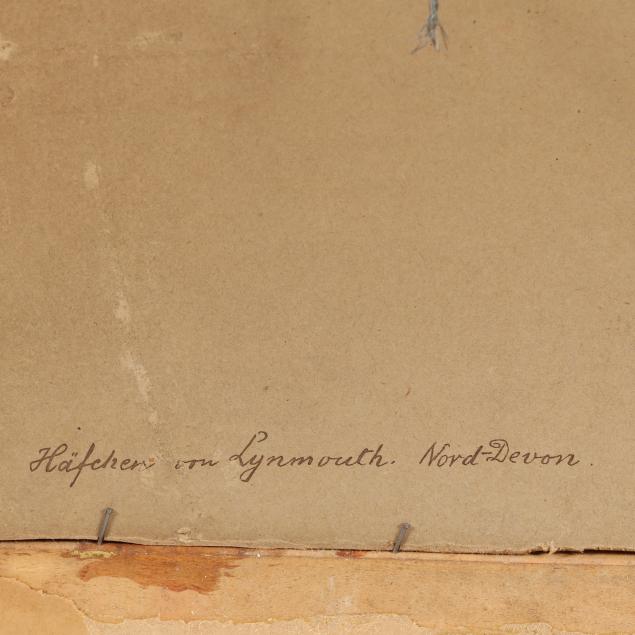 Häfchen von Lynmouth. Nord-Devon.